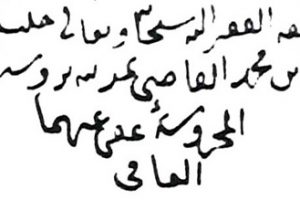 الفقير اليه سبحانه وتعالى
بن محمد القاضى بمدينه بروسه
المحروسة عفى عنهما
العافى